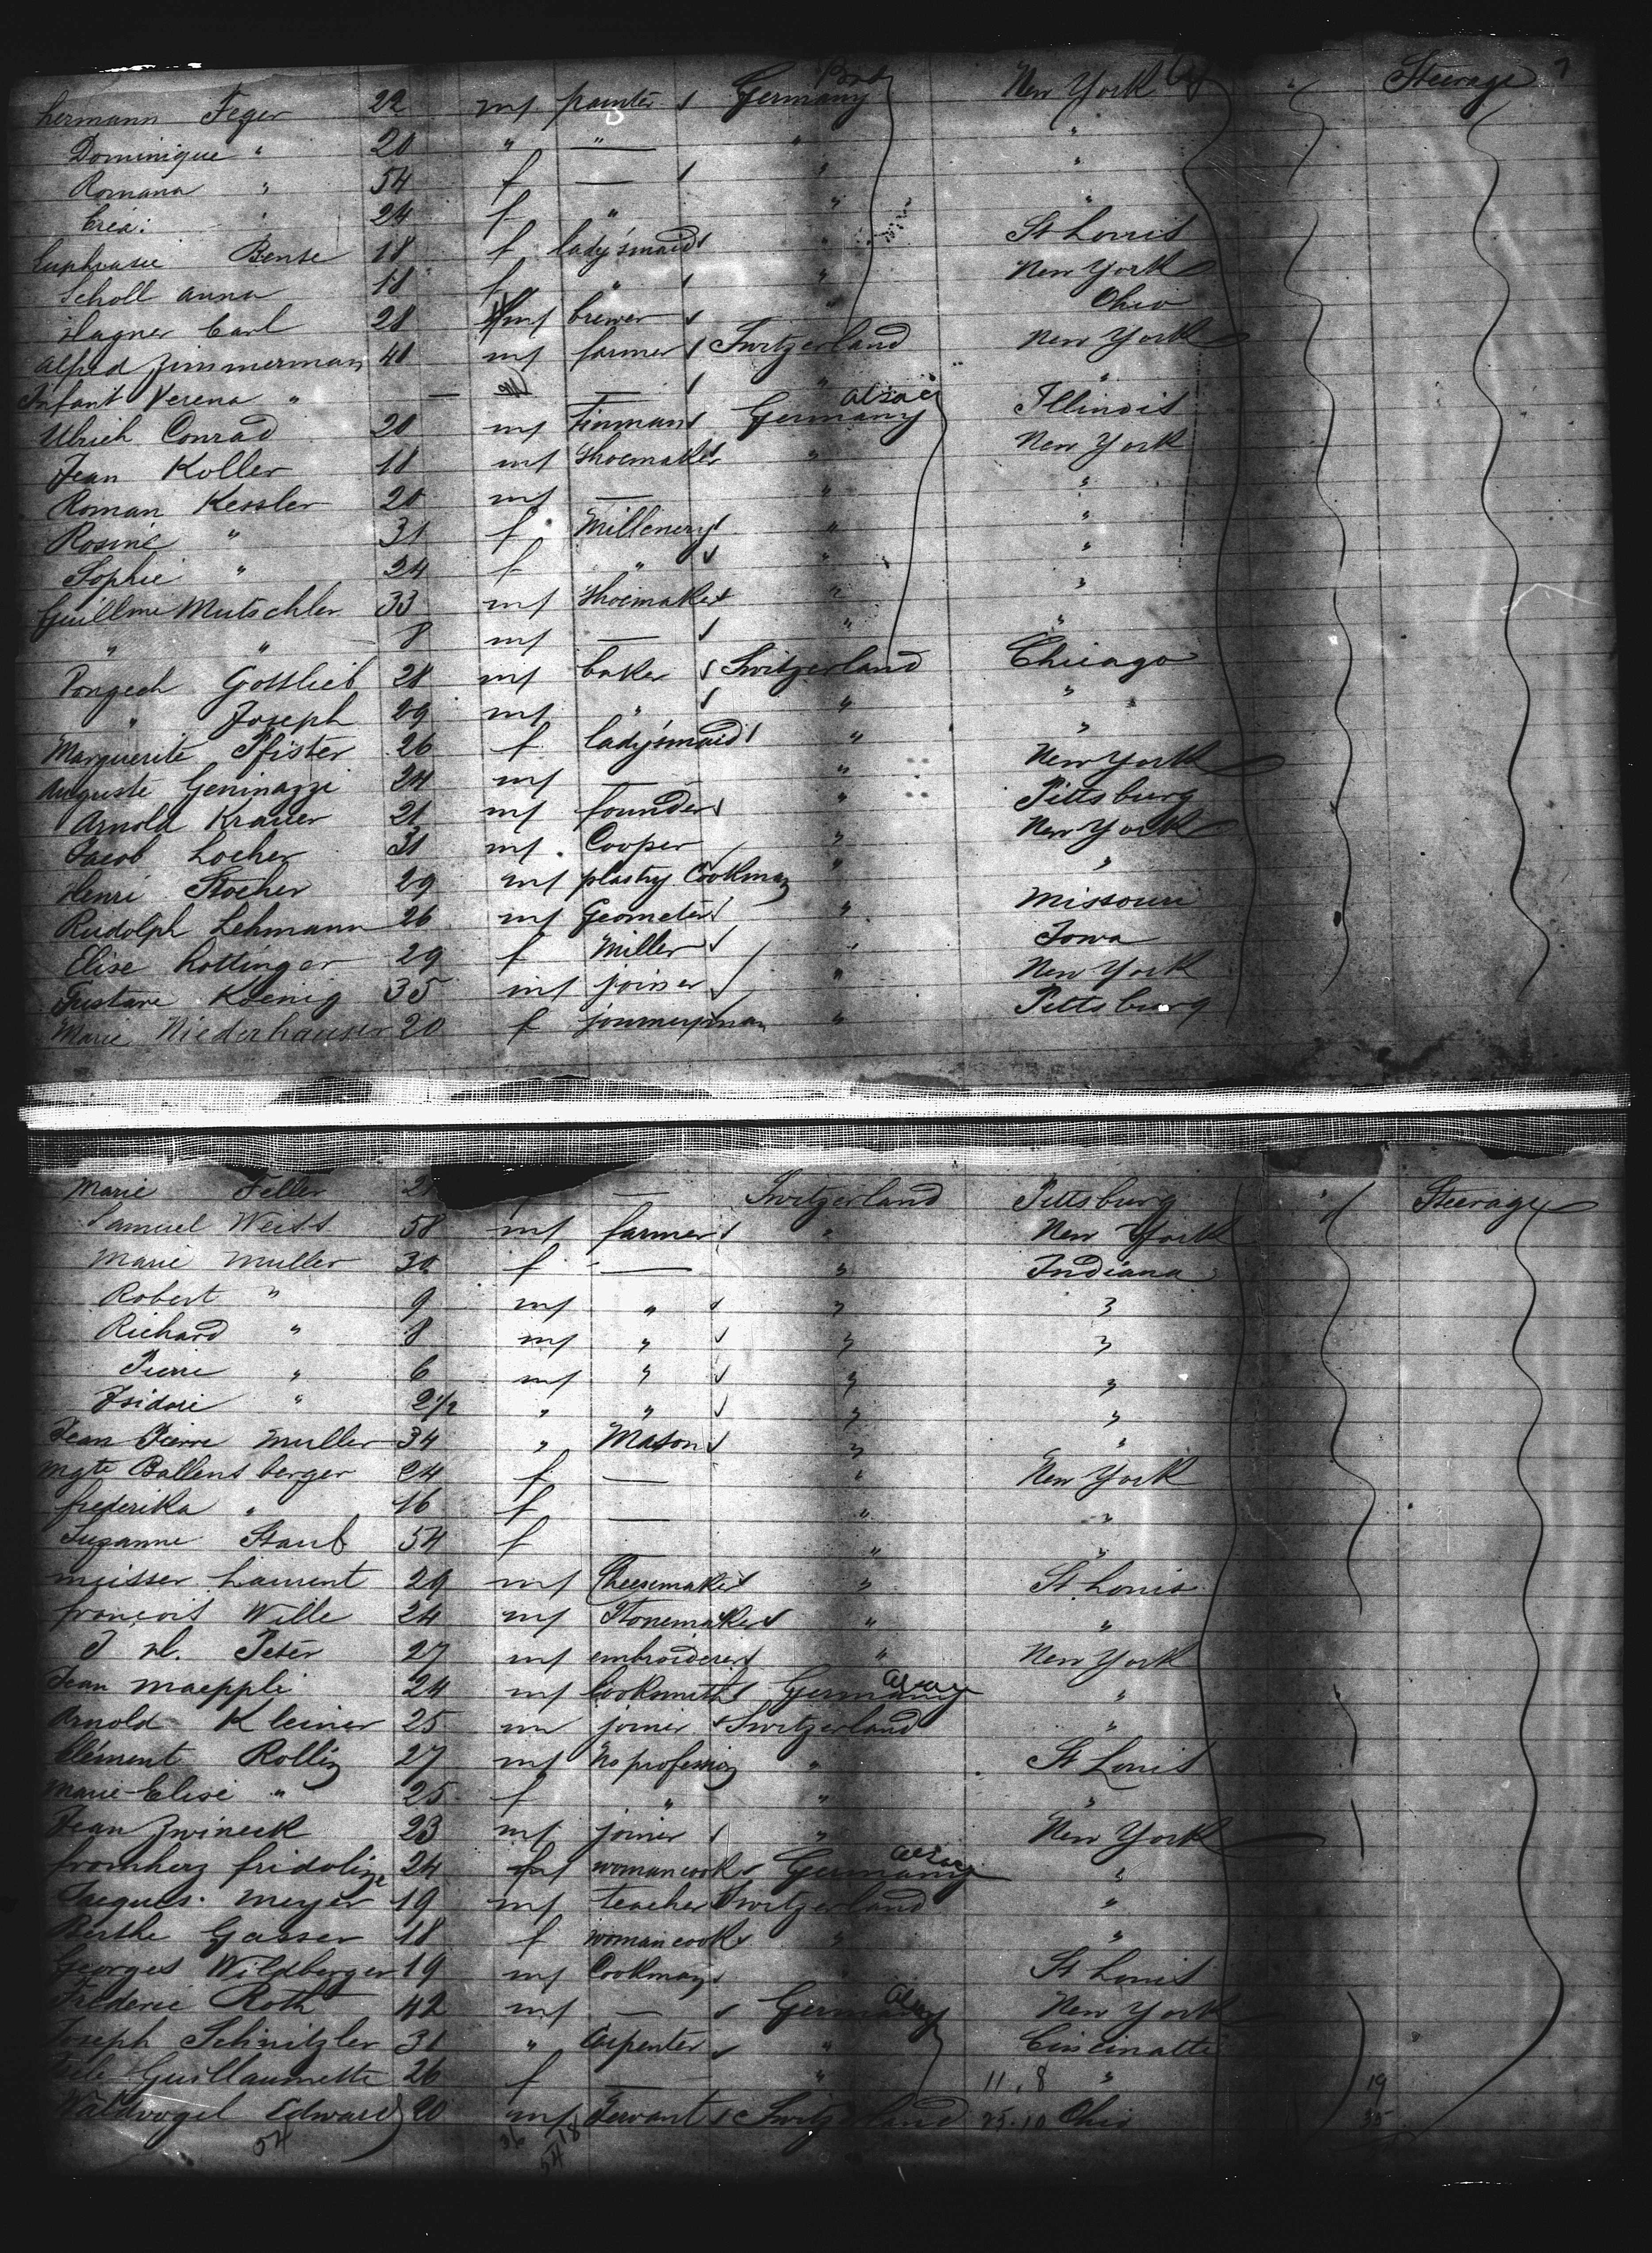 hermann Feger 22 m painter Germany Bad New York Steerage 7
Dominique " 20 " " — " "
Romana " 54 f — " "
" 24 f " " "
Euphrasie Bense 18 f lady'smaid " St Louis
Scholl Anna 18 f " " New York
Hagner Carl 28 m brewer " Ohio
Alfred Zimmerman 41 m farmer Switzerland New York
Infant Verena " — — " "
Ulrich Conrad 20 m Tinman Germany alsace Illinois
Jean Koller 18 m Shoemaker " New York
Roman Kessler 20 m — " "
Rosine " 31 f Millenery " "
Sophie " 24 f " " "
Guillme Mutschler 33 m Shoemaker " "
" " 8 m — " "
Gottlieb 28 m baker Switzerland Chicago
" Joseph 29 m " " "
Marguerite Pfister 26 f lady'smaid " "
Auguste Geninazzi 24 m — " New York
Arnold Krauer 21 m founder " Pittsburg
Jacob Locher 31 m Cooper " New York
Henri Stocher 29 m plastry Cookman " "
Rudolph Lehmann 26 m Geometer " Missouri
Elise Rottinger 29 f Miller " Iowa
Gustave Koenig 35 m joiner " New York
Marie Niederhauser 20 f journeyman " Pittsburg
Marie Feller 21 — Switzerland Pittsburg Steerage
Samuel Weiss 58 m farmer " New York
Marie Muller 30 f — " Indiana
Robert " 9 m " " "
Richard " 8 m " " "
Pierre " 6 m " " "
Isidore " 2 1/2 " " " "
Jean Pierre Muller 34 " Mason " "
Mgte Ballensberger 24 f — " New York
frederika " 16 f — " "
Suzanne Staub 54 f " "
meisser Laurent 29 m Cheesemaker " St Louis
françois Wille 24 m Stonemaker " "
J. Peter 27 m embroiderer " New York
Jean Maeppli 24 m Locksmith Germany alsace "
Arnold Kleiner 25 m joiner Switzerland "
Clément Rollin 27 m No profession " St Louis
Marie-Elise " 25 f " " "
Jean Zwineck 23 m joiner " New York
fromherz fridoline 24 f woman cook Germany alsace "
Jacques Meyer 19 m teacher Switzerland "
Berthe Gasser 18 f woman cook " "
Georges Wildberger 19 m Cookman St Louis
Frederic Roth 42 m — Germany alsace New York
Joseph Schnitzler 31 " Carpenter " Cincinatti
Guillaumette 26 f — " 11.8 " 19
Waldvogel Edward 20 m Servant Switzerland 25.10 Ohio 35
54 36 18
54